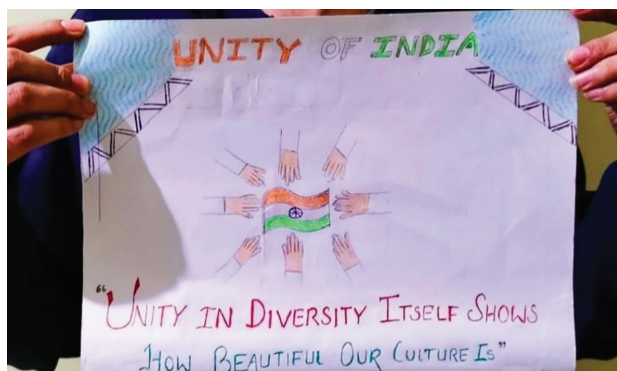 UNITY OF INDIA
"UNITY IN DIVERSITY ITSELF SHOWS
HOW BEAUTIFUL OUR CULTURE IS"